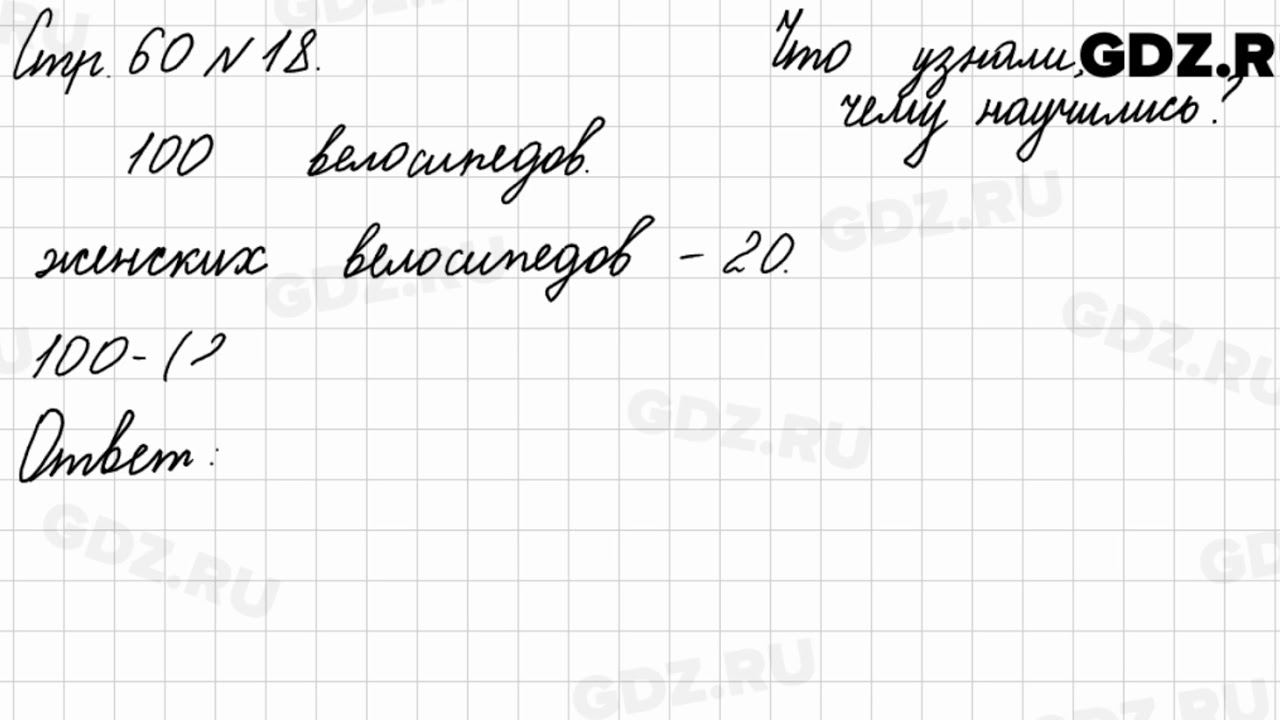 Стр. 60 № 18.
Что узнали,
чему научились?
GDZ.R
100 велосипедов.
женских велосипедов - 20.
100-(2
Ответ:
GDZ.RU
GDZ.RU
GDZ.RU
GDZ.RU
GDZ.RU
GDZ.RU